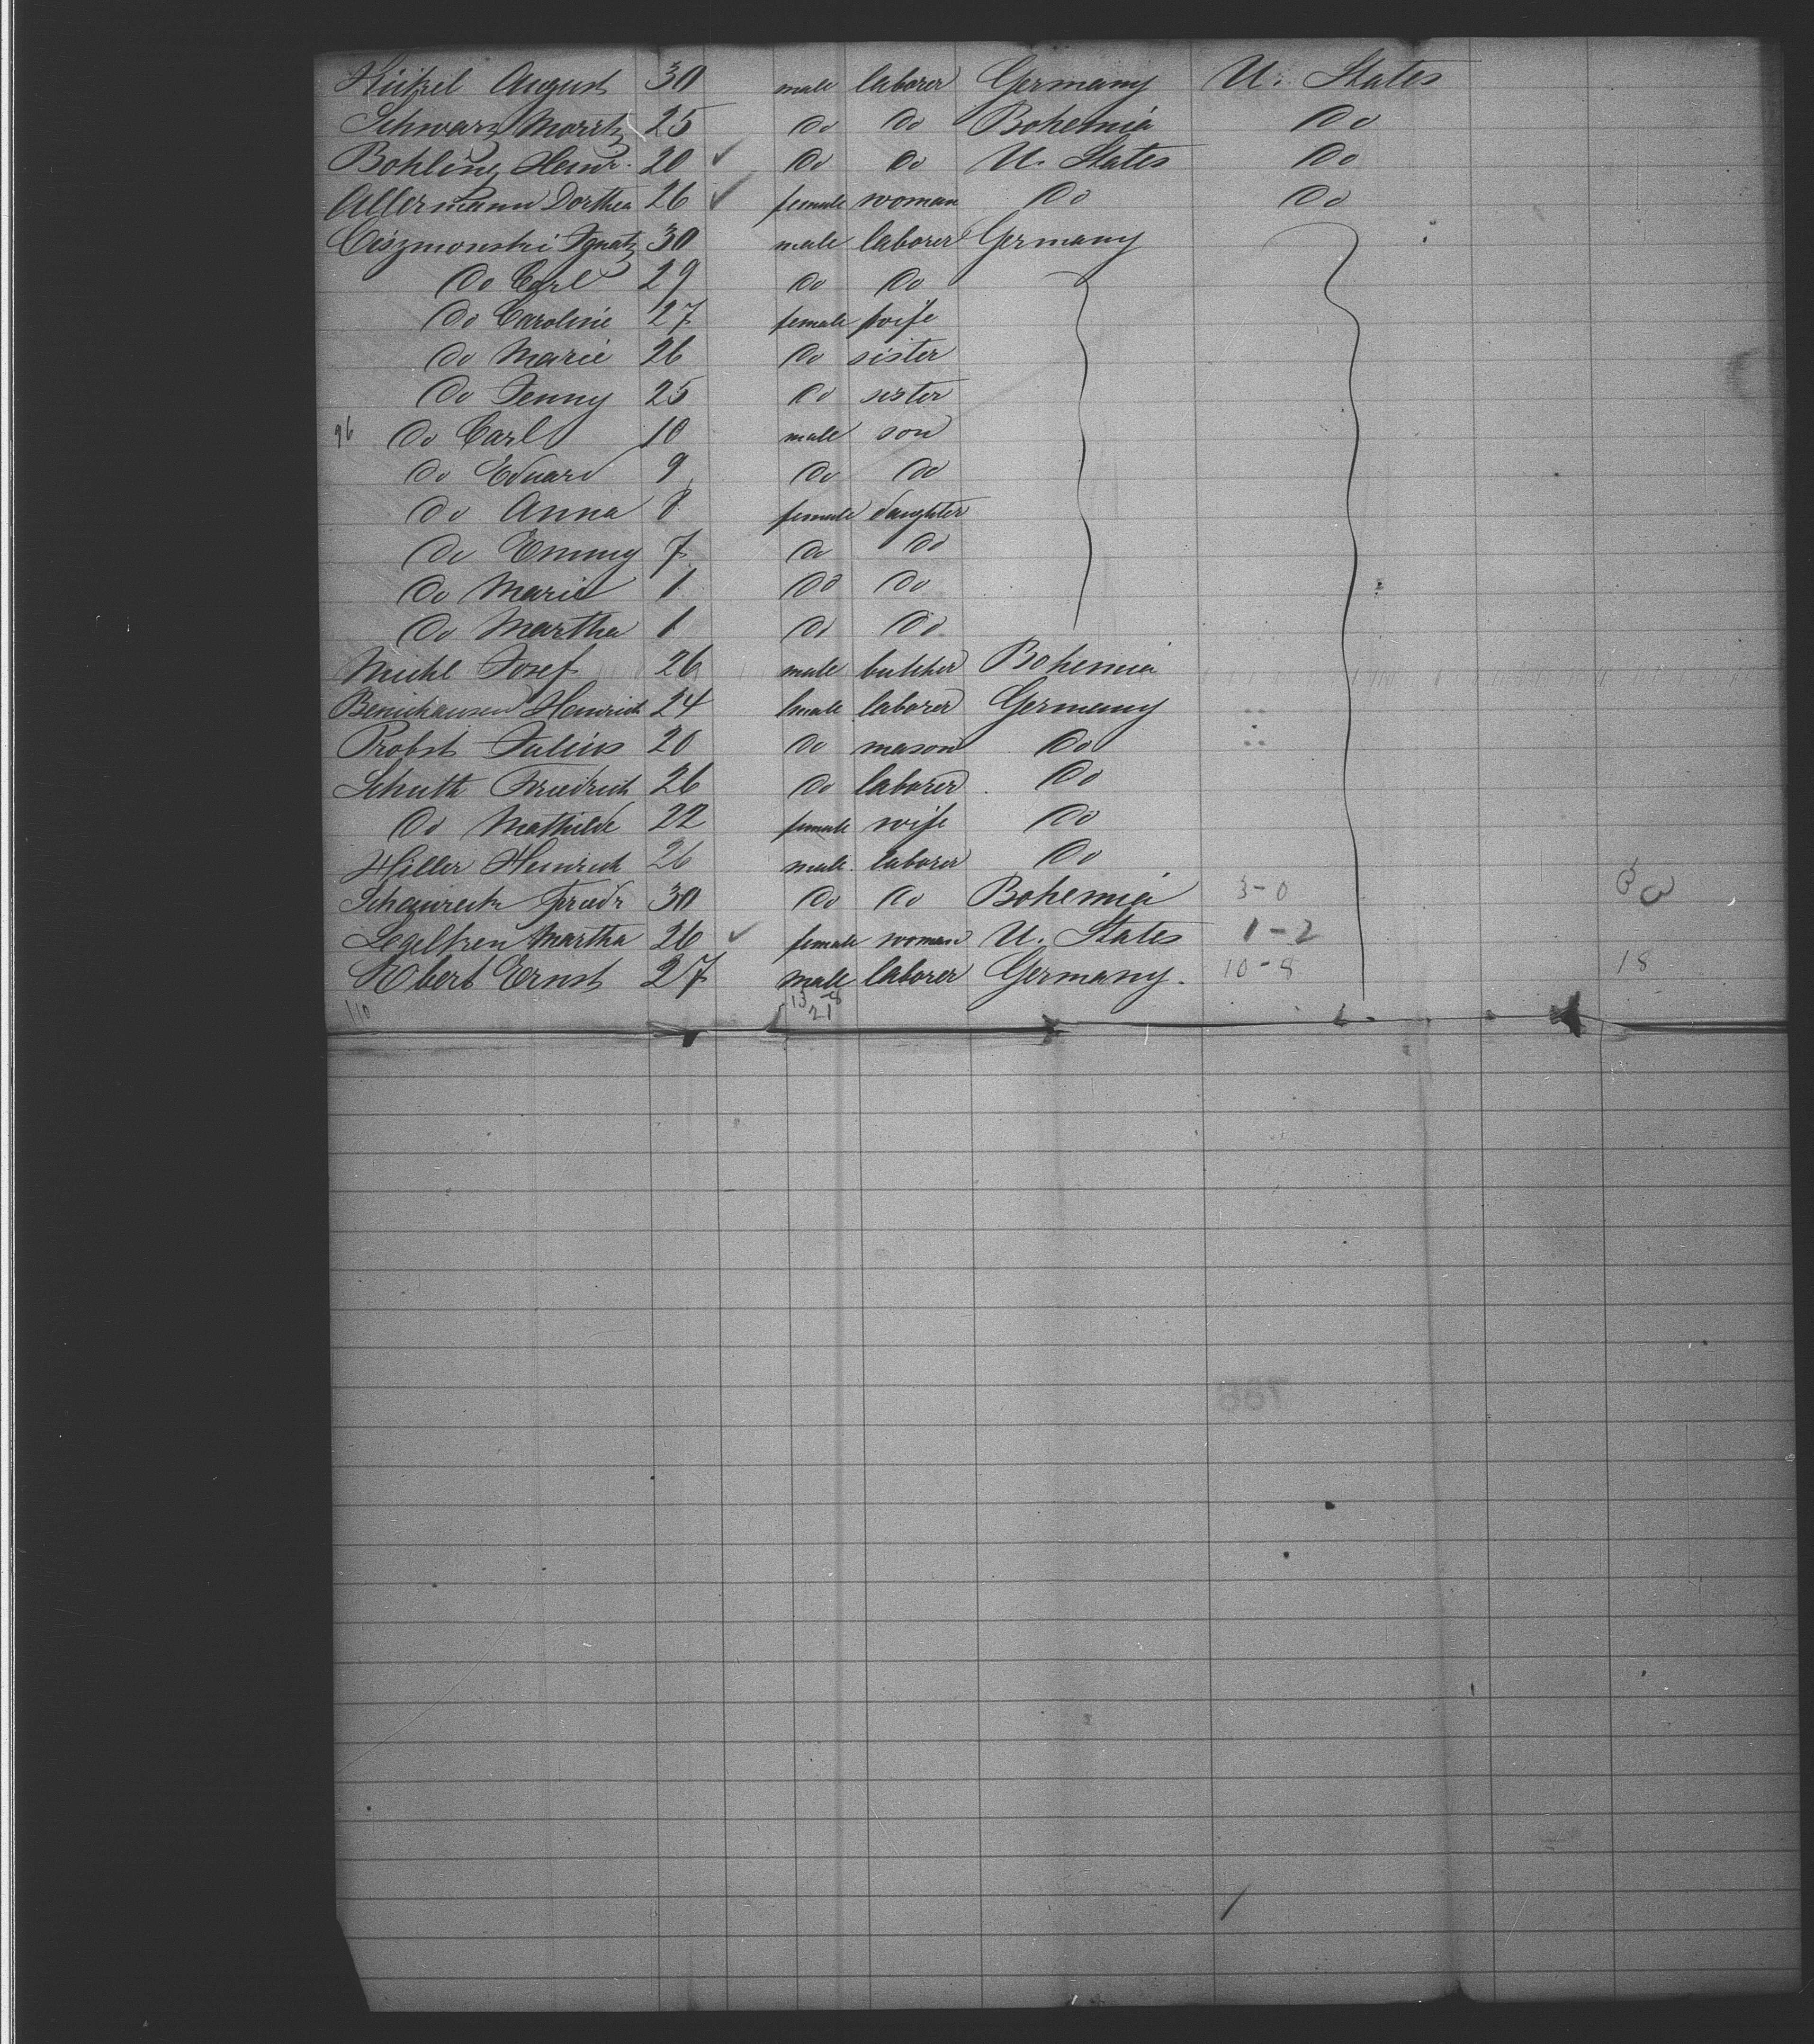 Hützel August 30 male laborer Germany U. States
Schwarz Moritz 25 Do Do Bohemia Do
Bohling Heinr. 20 ✓ Do Do U. States Do
Allermann Dorthea 26 ✓ female woman Do Do
Ciszmonski Ignatz 30 male laborer Germany
Do Carl 29 Do Do
Do Caroline 27 female wife
Do Marie 26 Do sister
Do Jenny 25 Do sister
96 Do Carl 10 male son
Do Eduard 9 Do Do
Do Anna 8 female daughter
Do Emmy 7 Do Do
Do Marie 1 Do Do
Do Martha 1 Do Do
Michl Josef 26 male butcher Bohemia
Heinrich 24 male laborer Germany
Probst Julius 20 Do mason Do
Schuth Friedrich 26 Do laborer Do
Do Mathilde 22 female wife Do
Hiller Heinrich 26 male laborer Do
Friedr 30 Do Do Bohemia 3-0 3
Martha 26 ✓ female woman U. States 1-2
Ebert Ernst 27 male laborer Germany. 10-8 18
110 13-8
21